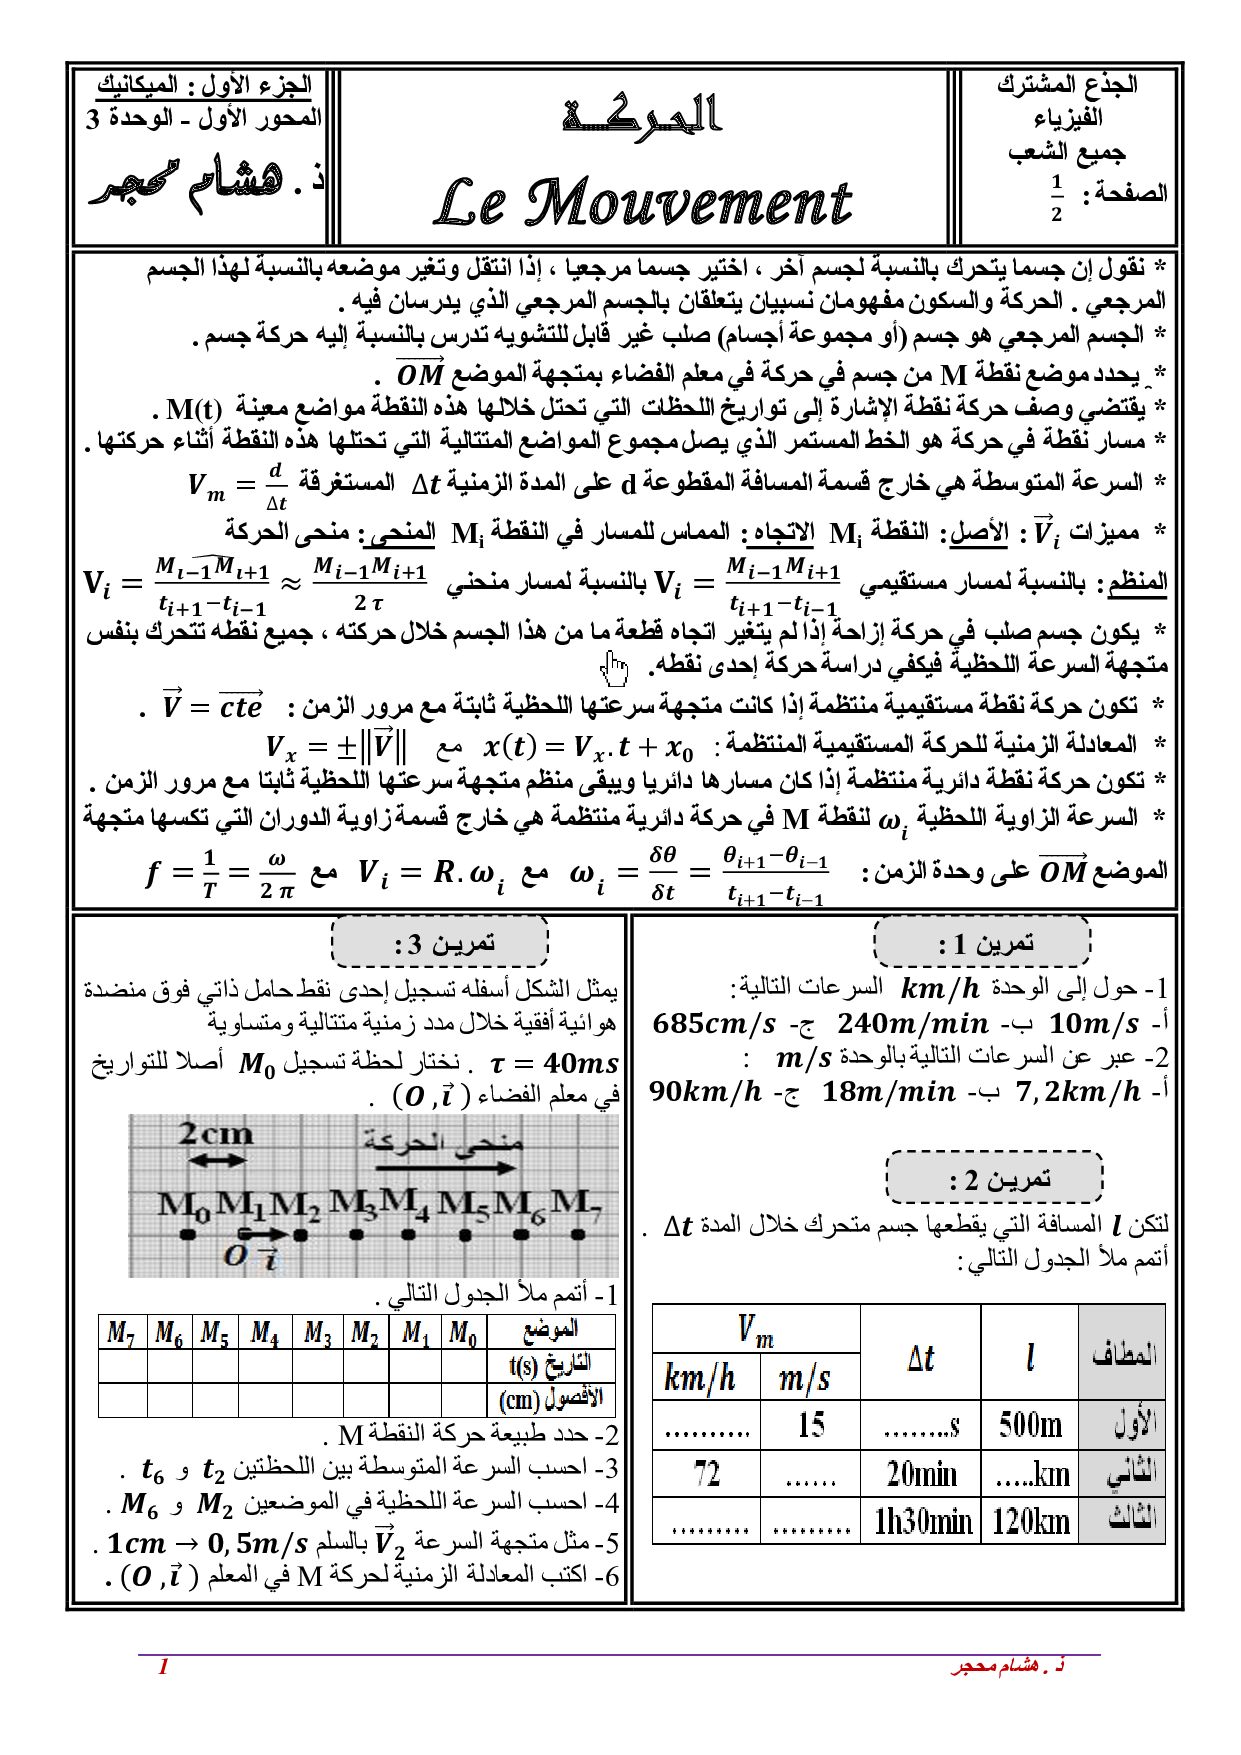 الجذع المشترك
الفيزياء
جميع الشعب
الصفحة : 1/2
الحركــة
Le Mouvement
الجزء الأول : الميكانيك
المحور الأول - الوحدة 3
ذ . هشام محجر
* نقول إن جسما يتحرك بالنسبة لجسم آخر ، اختير جسما مرجعيا ، إذا انتقل وتغير موضعه بالنسبة لهذا الجسم
المرجعي . الحركة والسكون مفهومان نسبيان يتعلقان بالجسم المرجعي الذي يدرسان فيه .
* الجسم المرجعي هو جسم (أو مجموعة أجسام) صلب غير قابل للتشويه تدرس بالنسبة إليه حركة جسم .
* يحدد موضع نقطة M من جسم في حركة في معلم الفضاء بمتجهة الموضع \overrightarrow{OM} .
* يقتضي وصف حركة نقطة الإشارة إلى تواريخ اللحظات التي تحتل خلالها هذه النقطة مواضع معينة M(t) .
* مسار نقطة في حركة هو الخط المستمر الذي يصل مجموع المواضع المتتالية التي تحتلها هذه النقطة أثناء حركتها .
* السرعة المتوسطة هي خارج قسمة المسافة المقطوعة d على المدة الزمنية Δt المستغرقة V_m = d/Δt
* مميزات \vec{V}_i : الأصل : النقطة M_i الاتجاه : المماس للمسار في النقطة M_i المنحى : منحى الحركة
المنظم : بالنسبة لمسار مستقيمي V_i = M_{i-1}M_{i+1}/(t_{i+1}-t_{i-1}) بالنسبة لمسار منحني V_i = \widehat{M_{i-1}M_{i+1}}/(t_{i+1}-t_{i-1}) ≈ M_{i-1}M_{i+1}/(2 τ)
* يكون جسم صلب في حركة إزاحة إذا لم يتغير اتجاه قطعة ما من هذا الجسم خلال حركته ، جميع نقطه تتحرك بنفس
متجهة السرعة اللحظية فيكفي دراسة حركة إحدى نقطه.
* تكون حركة نقطة مستقيمية منتظمة إذا كانت متجهة سرعتها اللحظية ثابتة مع مرور الزمن : \vec{V} = \overrightarrow{cte} .
* المعادلة الزمنية للحركة المستقيمية المنتظمة : x(t) = V_x.t + x_0 مع V_x = ±‖\vec{V}‖
* تكون حركة نقطة دائرية منتظمة إذا كان مسارها دائريا ويبقى منظم متجهة سرعتها اللحظية ثابتا مع مرور الزمن .
* السرعة الزاوية اللحظية ω_i لنقطة M في حركة دائرية منتظمة هي خارج قسمة زاوية الدوران التي تكسها متجهة
الموضع \overrightarrow{OM} على وحدة الزمن : ω_i = δθ/δt = (θ_{i+1}-θ_{i-1})/(t_{i+1}-t_{i-1}) مع V_i = R.ω_i مع f = 1/T = ω/(2 π)
تمرين 1 :
1- حول إلى الوحدة km/h السرعات التالية :
أ- 10m/s ب- 240m/min ج- 685cm/s
2- عبر عن السرعات التالية بالوحدة m/s :
أ- 7,2km/h ب- 18m/min ج- 90km/h
تمريـن 2 :
لتكن l المسافة التي يقطعها جسم متحرك خلال المدة Δt .
أتمم ملأ الجدول التالي :
المطاف l Δt V_m
m/s km/h
الأول 500m ........s 15 ..........
الثاني .....km 20min ...... 72
الثالث 120km 1h30min ......... .........
تمريـن 3 :
يمثل الشكل أسفله تسجيل إحدى نقط حامل ذاتي فوق منضدة
هوائية أفقية خلال مدد زمنية متتالية ومتساوية
τ = 40ms . نختار لحظة تسجيل M_0 أصلا للتواريخ
في معلم الفضاء (O ,\vec{i}) .
2cm منحى الحركة
M_0 M_1 M_2 M_3 M_4 M_5 M_6 M_7
O \vec{i}
1- أتمم ملأ الجدول التالي .
الموضع M_0 M_1 M_2 M_3 M_4 M_5 M_6 M_7
التاريخ t(s)
الأفصول (cm)
2- حدد طبيعة حركة النقطة M .
3- احسب السرعة المتوسطة بين اللحظتين t_2 و t_6 .
4- احسب السرعة اللحظية في الموضعين M_2 و M_6 .
5- مثل متجهة السرعة \vec{V}_2 بالسلم 1cm → 0,5m/s .
6- اكتب المعادلة الزمنية لحركة M في المعلم (O ,\vec{i}) .
ذ . هشام محجر
1